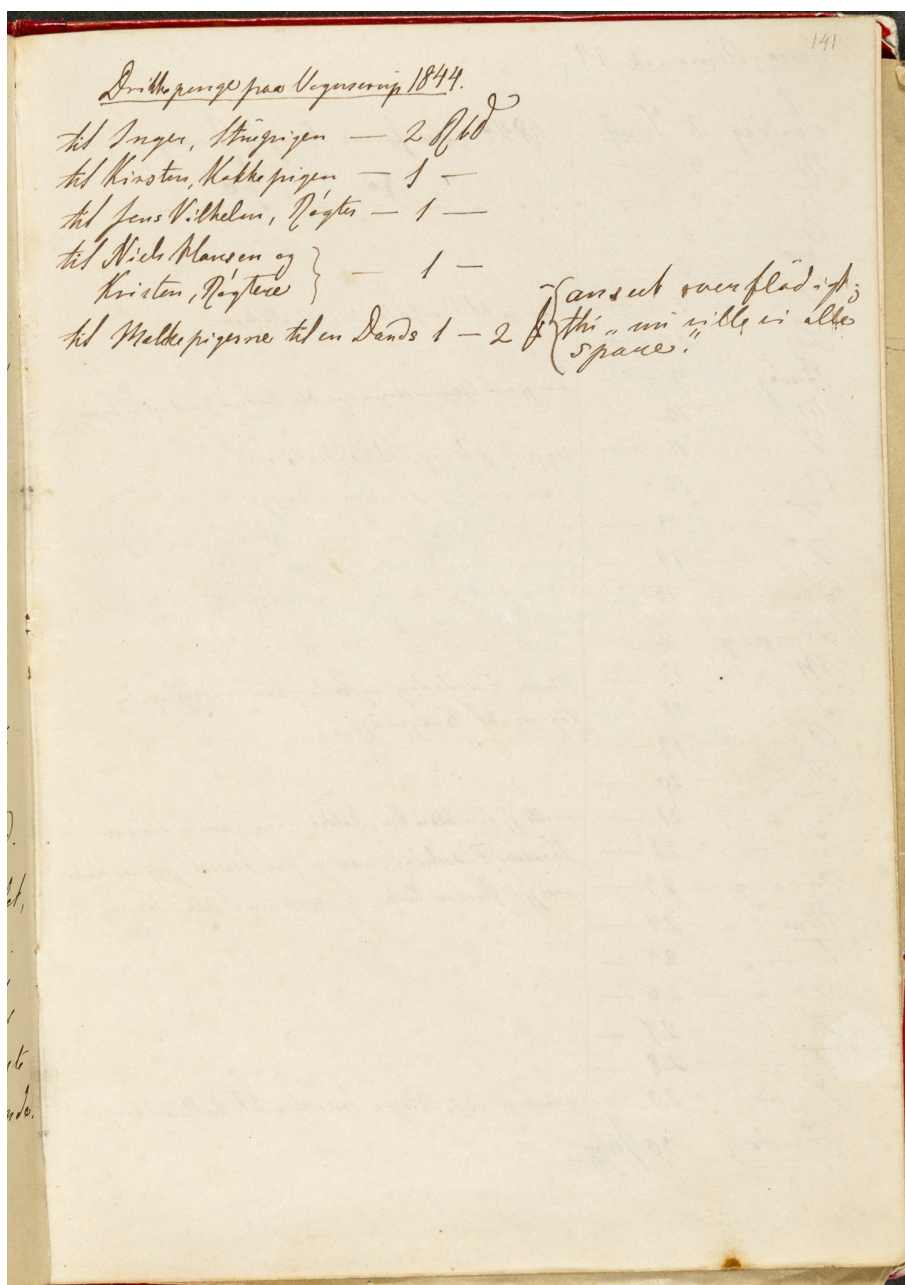 141
Drikkepenge paa Vognserup 1844.
til Inger, Stuepigen — 2 Rbd
til Kirsten, Kokkepigen — 1 —
til Jens Vilhelm, Røgter — 1 —
til Niels Hansen og
Kristen, Røgtere — 1 —
til Malkepigerne til en Dands 1 — 2
anseet overflødigt;
thi „nu ville vi alle
spare.“